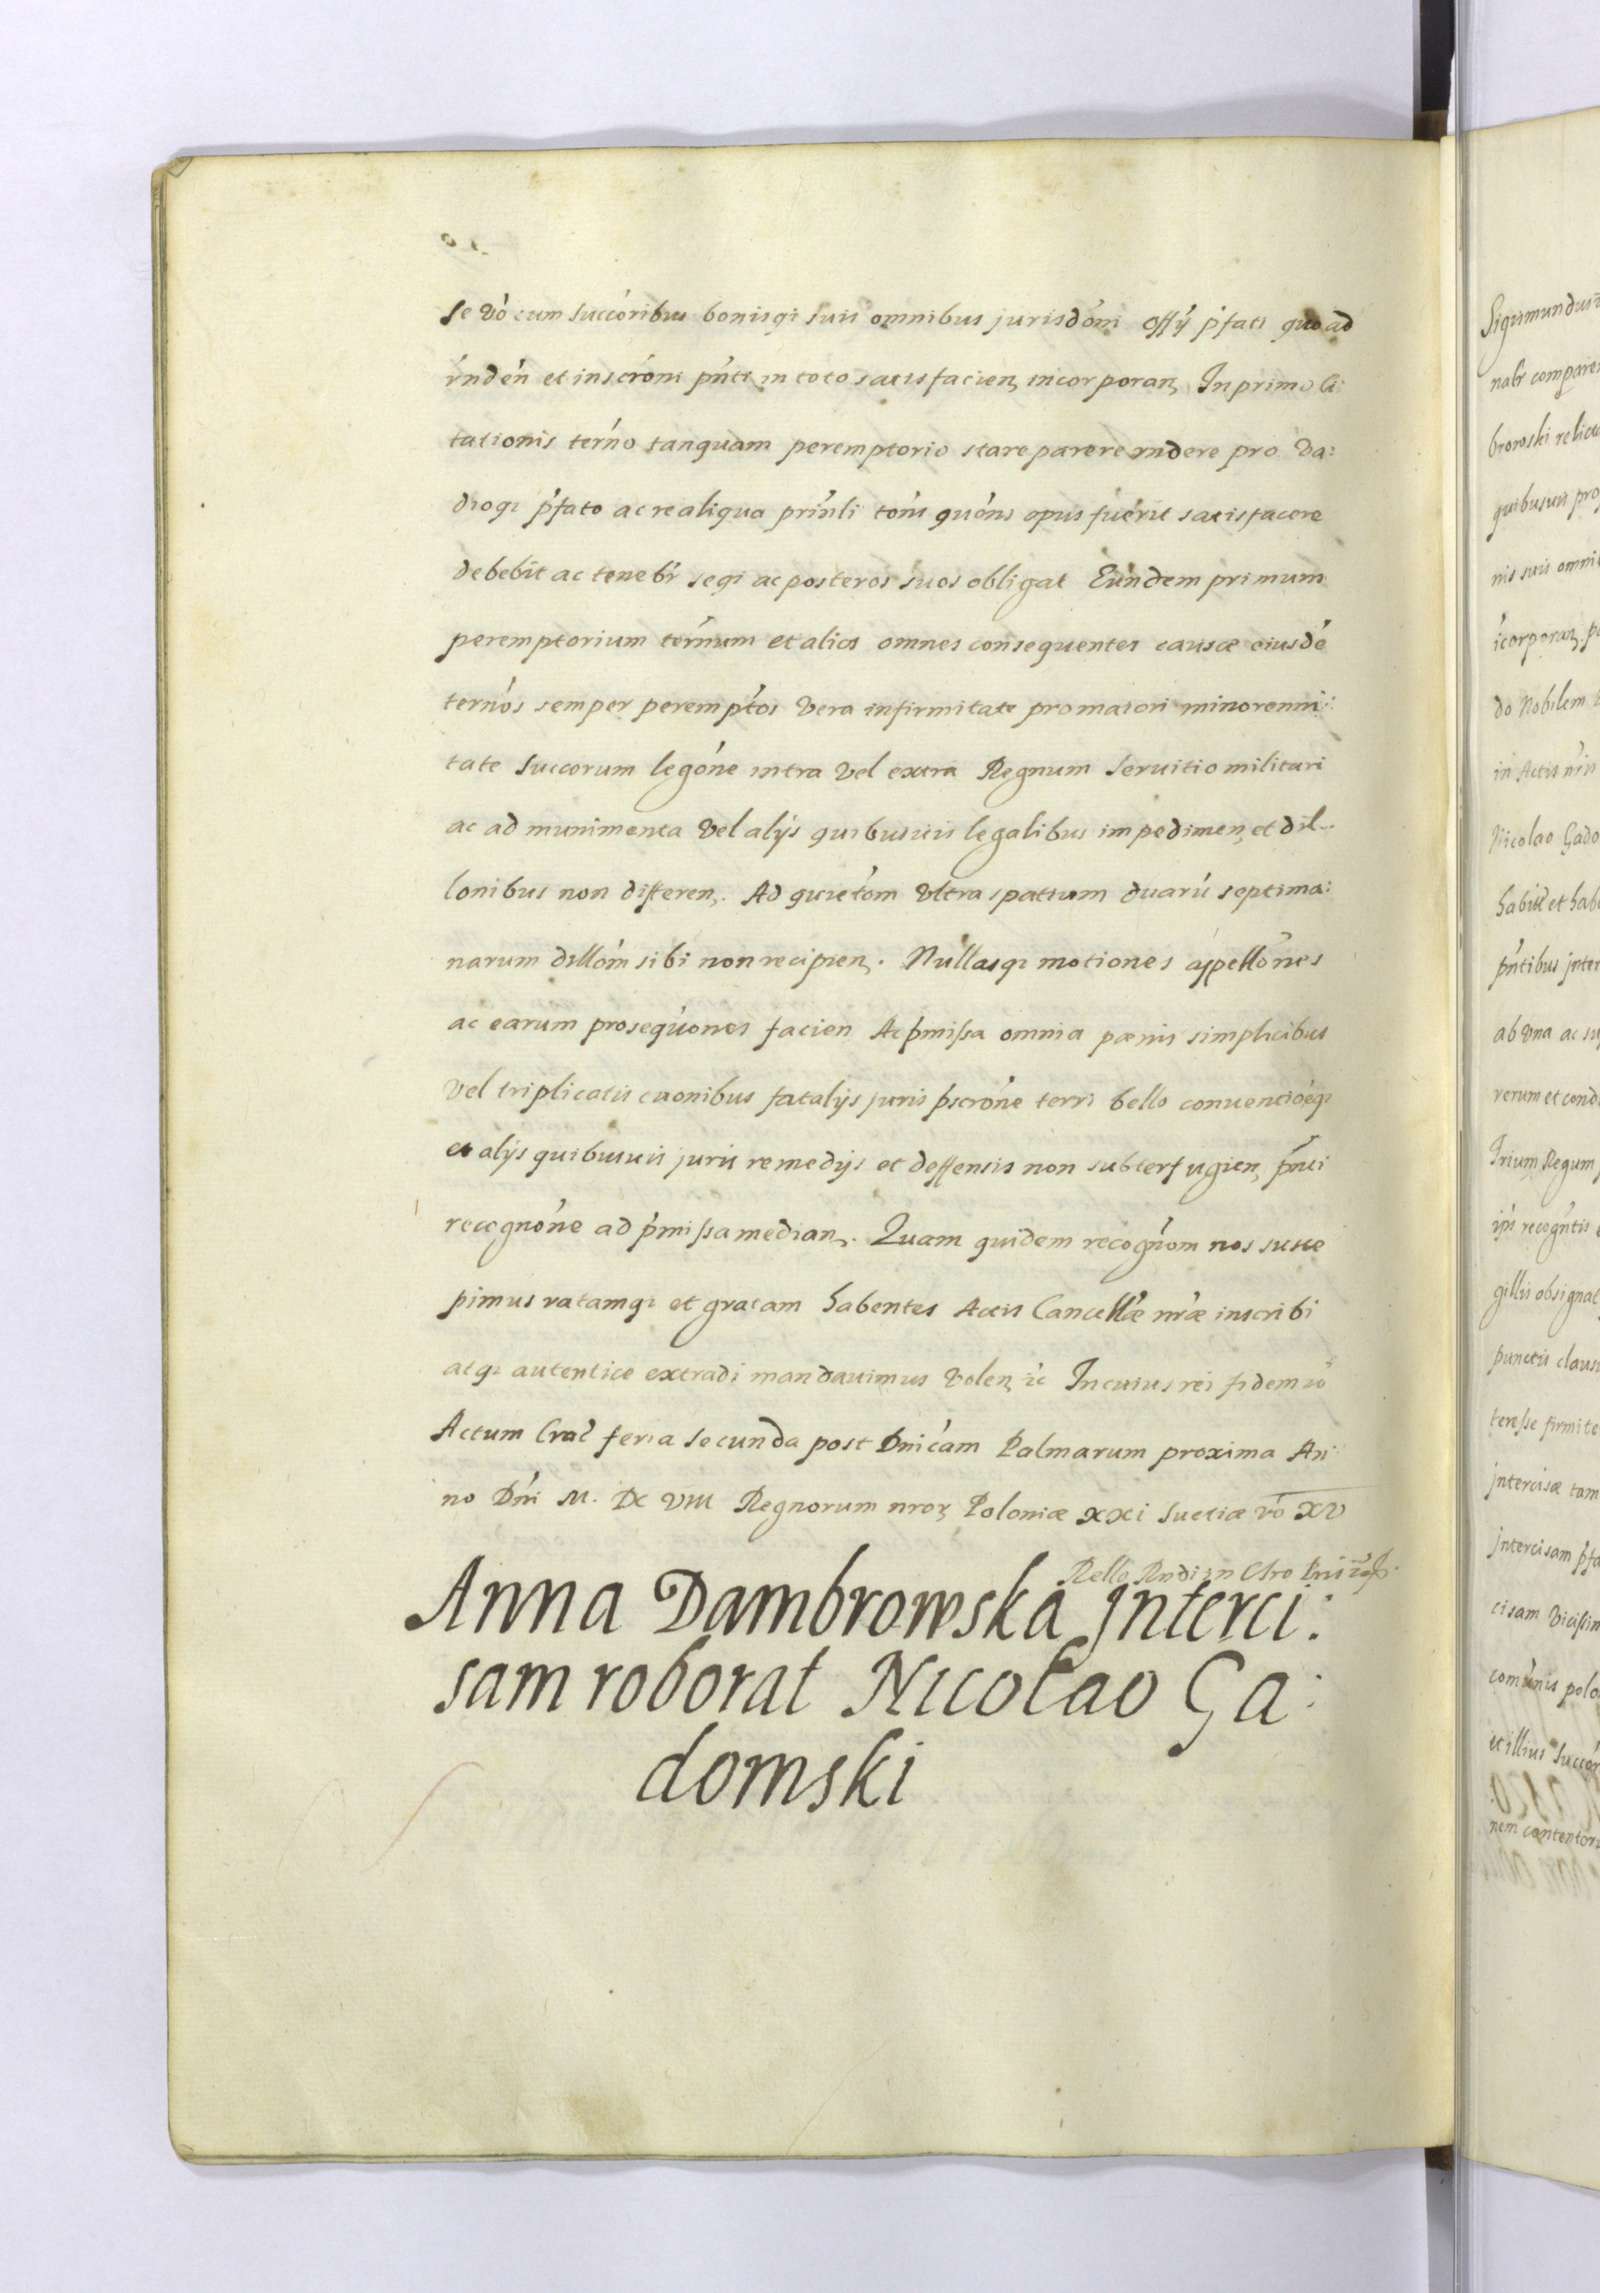 se vó cum succóribus bonisqi suis omnibus jurisdóni offÿ pfati quoad
rnden et inscróni pnti in toto satisfacien incorporan In primo Ci:
tationis terno tanquam peremptorio stare parere rndere pro va:
dioqi pfato ac re aliqua prinli toni quóns opus fuérit satisfacere
debebit ac tenebr seqi ac posteros suos obligat Eundem primum
peremptorium térnum et alios omnes consequentes causæ eiusdé
ternós semper peremptos vera infirmitate pro maiori minorenni:
tate succorum legóne intra vel extra Regnum servitio militari
ac ad munimenta vel alÿs quibusvis legalibus impedimen, et dil..
lonibus non differen,. Ad quietóm ultra spatium duarú septima:
narum dillóm sibi non recipien,. Nullasqi motiones appellónes
ac earum prosequones facien Ac pmissa omnia pœnis simplicibus
vel triplicatis evonibus fatalÿs juris pscróne terri bello convencióeqi
et alÿs quibusvis juris remedÿs et deffensis non subterfugien, pnti
recognóne ad pmissa median,. Quam quidem recognóm nos susce
pimus ratamqi et gratam habentes Actis Cancellæ nræ inscribi
atqi autentice extradi mandavimus volen, &c In cuius rei fidem vó
Actum Crac feria secunda post Dnicam Palmarum proxima An:
no Dni M. DC VIII Regnorum nror Poloniæ XXI Suetiæ vó XV
Rello Rndi in Chro Pris
Anna Dambrowska Interci:
sam roborat Nicolao Ga:
domski
Sigismundus
nalr comparen
browski relicta
quibusvis pro
nis suis omni
icorporan,
do Nobilem
in Actis nris
Nicolao Gado
habitt et hab
pntibus inter
ab una ac su
rerum et cond
Trium Regum
ipi recogntis
gillis obsignat
punctis claus
teresse firmite
intercisæ tam
intercisam pfa
cisam vicissim
comunis polo
et illius succor
nem contentoru